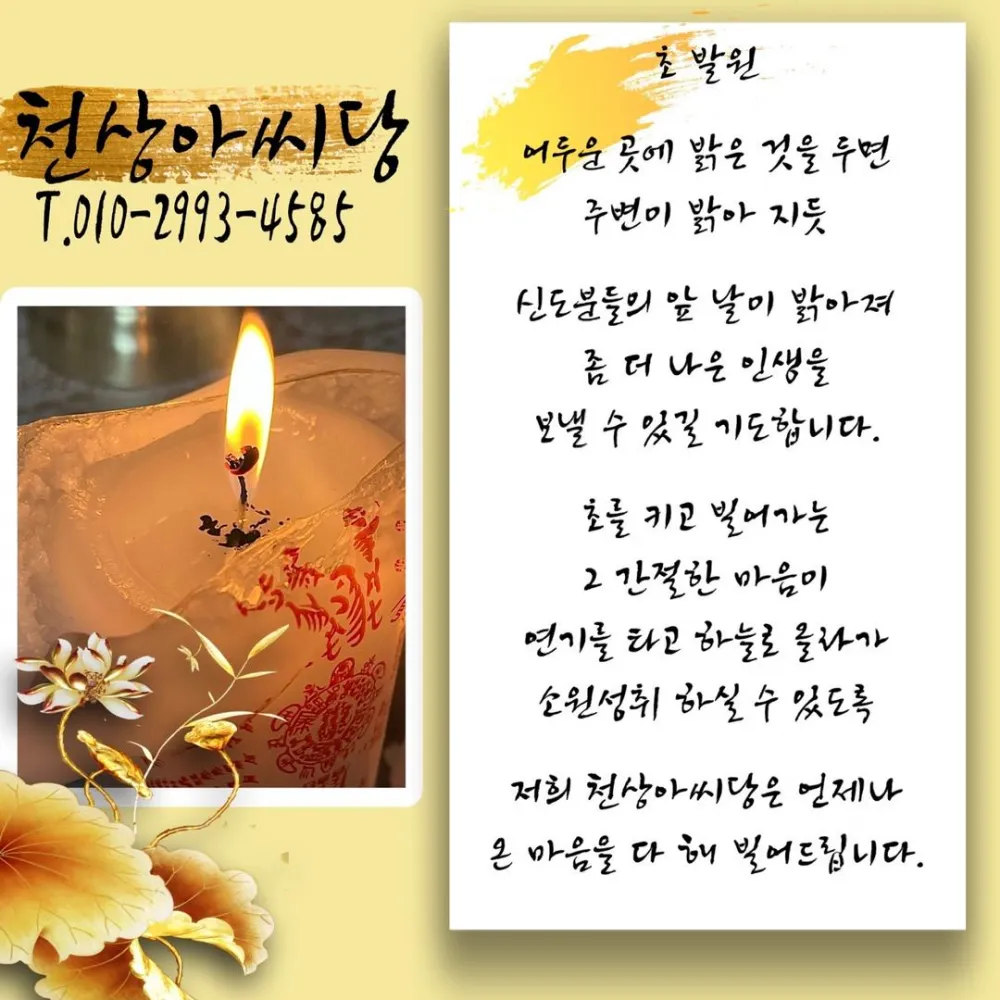 천상아씨당
T.010-2993-4585
초 발원
어두운 곳에 밝은 것을 두면
주변이 밝아 지듯
신도분들의 앞 날이 밝아져
좀 더 나은 인생을
보낼 수 있길 기도합니다.
초를 키고 빌어가는
그 간절한 마음이
연기를 타고 하늘로 올라가
소원성취 하실 수 있도록
저희 천상아씨당은 언제나
온 마음을 다 해 빌어드립니다.